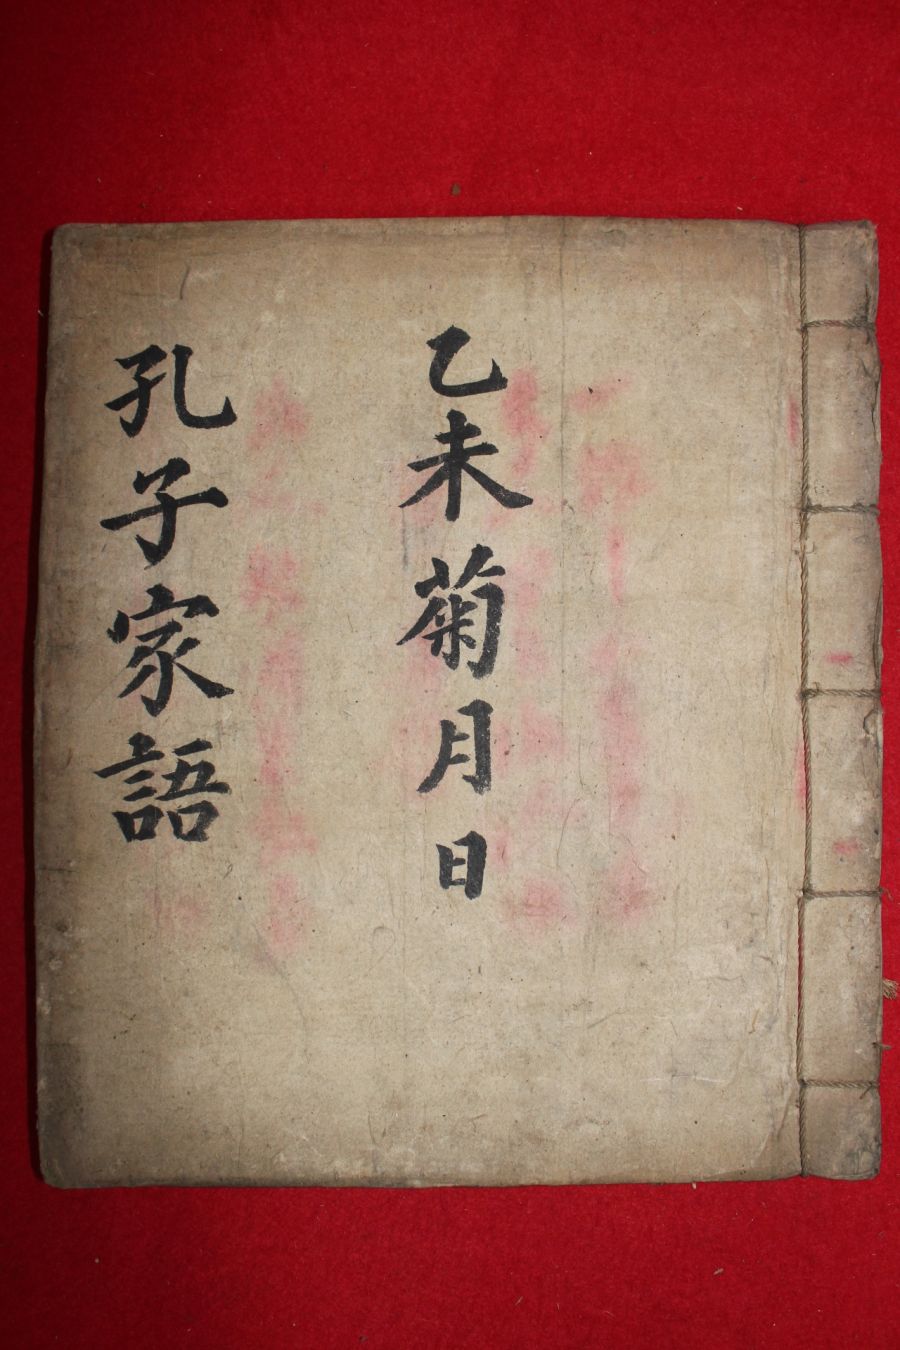 乙未菊月日
孔子家語